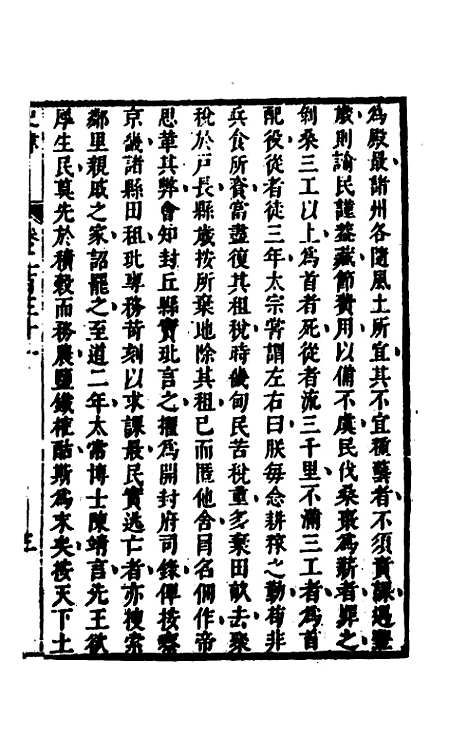 為殿最諸州各隨風土所宜其不宜種藝者不須責課遇豐
歲則諭民謹蓋藏節費用以備不虞民伐桑棗為薪者罪之
剝桑三工以上為首者死從者流三千里不滿三工者為首
配役從者徒三年太宗嘗謂左右曰朕每念耕稼之勤苟非
兵食所資當盡復其租稅時畿甸民苦稅重多棄田畝去聚
稅於戶長縣歲按所棄地除其租已而匿他舍冒名佃作帝
思革其弊會知封丘縣竇玭言之擢為開封府司錄俾按察
京畿諸縣田租玭專務苛刻以求課最民實逃亡者亦搜索
鄰里親戚之家詔罷之至道二年太常博士陳靖言先王欲
厚生民莫先於積穀而務農鹽鐵榷酤斯為末矣按天下土